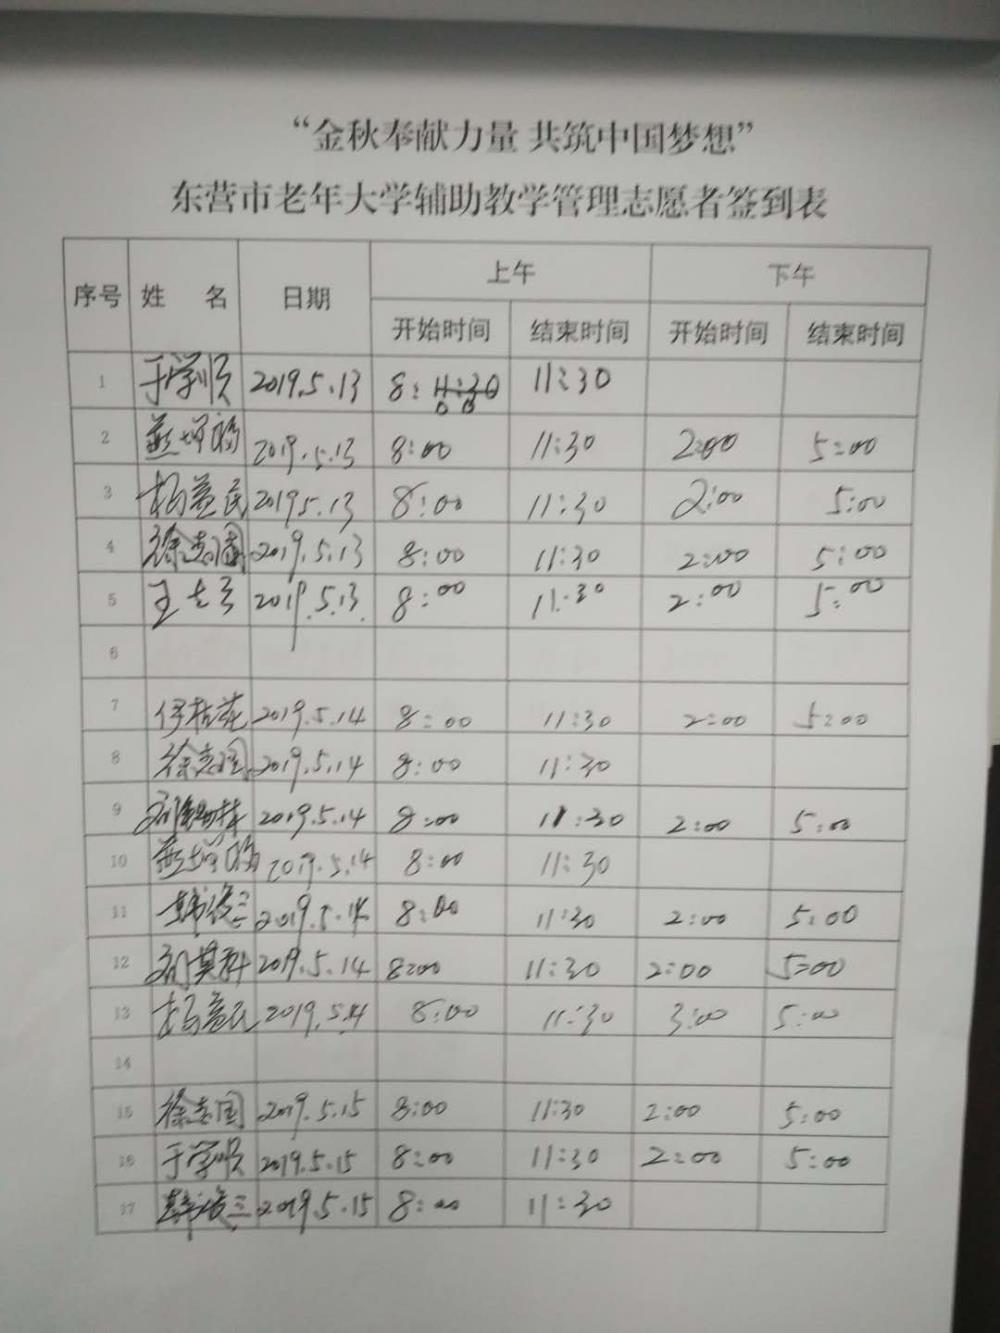 “金秋奉献力量 共筑中国梦想”
东营市老年大学辅助教学管理志愿者签到表
序号 姓 名 日期 上午 下午
开始时间 结束时间 开始时间 结束时间
1 于学顺 2019.5.13 8: 11:30
2 2019.5.13 8:00 11:30 2:00 5:00
3 杨益民 2019 5.13 8:00 11:30 2:00 5:00
4 徐志国 2019.5.13 8:00 11:30 2:00 5:00
5 王 2019.5.13. 8:00 11:30 2:00 5:00
6
7 伊桂花 2019.5.14 8:00 11:30 2:00 5:00
8 徐志国 2019.5.14 8:00 11:30
9 2019.5.14 8:00 11:30 2:00 5:00
10 2019.5.14 8:00 11:30
11 2019.5.14 8:00 11:30 2:00 5:00
12 2019.5.14 8:00 11:30 2:00 5:00
13 杨益民 2019.5.14 8:00 11:30 3:00 5:00
14
15 徐志国 2019.5.15 8:00 11:30 2:00 5:00
16 于学顺 2019.5.15 8:00 11:30 2:00 5:00
17 2019.5.15 8:00 11:30